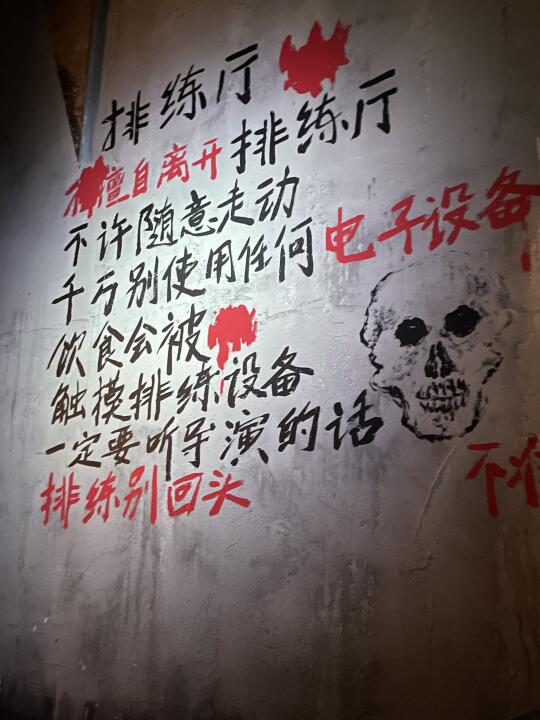 排练厅
擅自离开排练厅
不许随意走动
千万别使用任何电子设备
饮食会被
触摸排练设备
一定要听导演的话
排练别回头
不